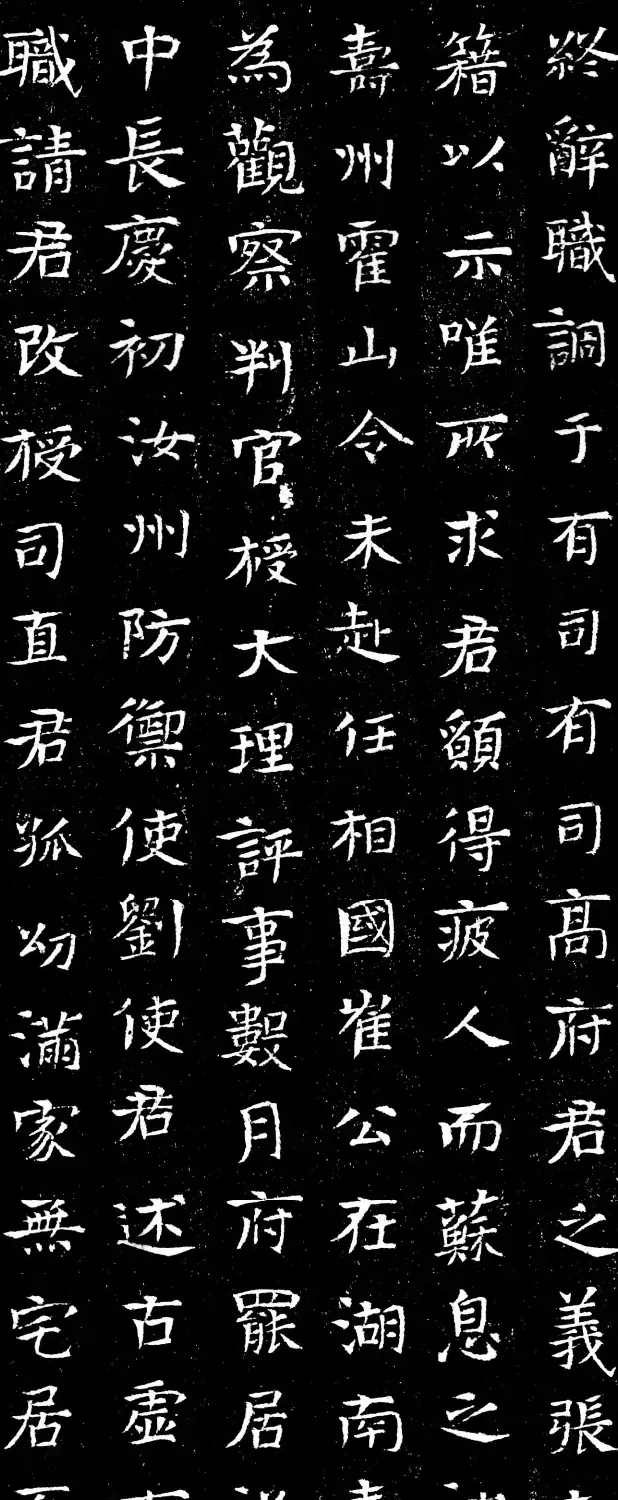 終辭職調于有司有司高府君之義張
籍以示唯所求君顧得疲人而蘇息之
壽州霍山令未赴任相國崔公在湖南
為觀察判官授大理評事數月府罷居
中長慶初汝州防禦使劉使君述古虛
職請君改授司直君孤幼滿家無宅居